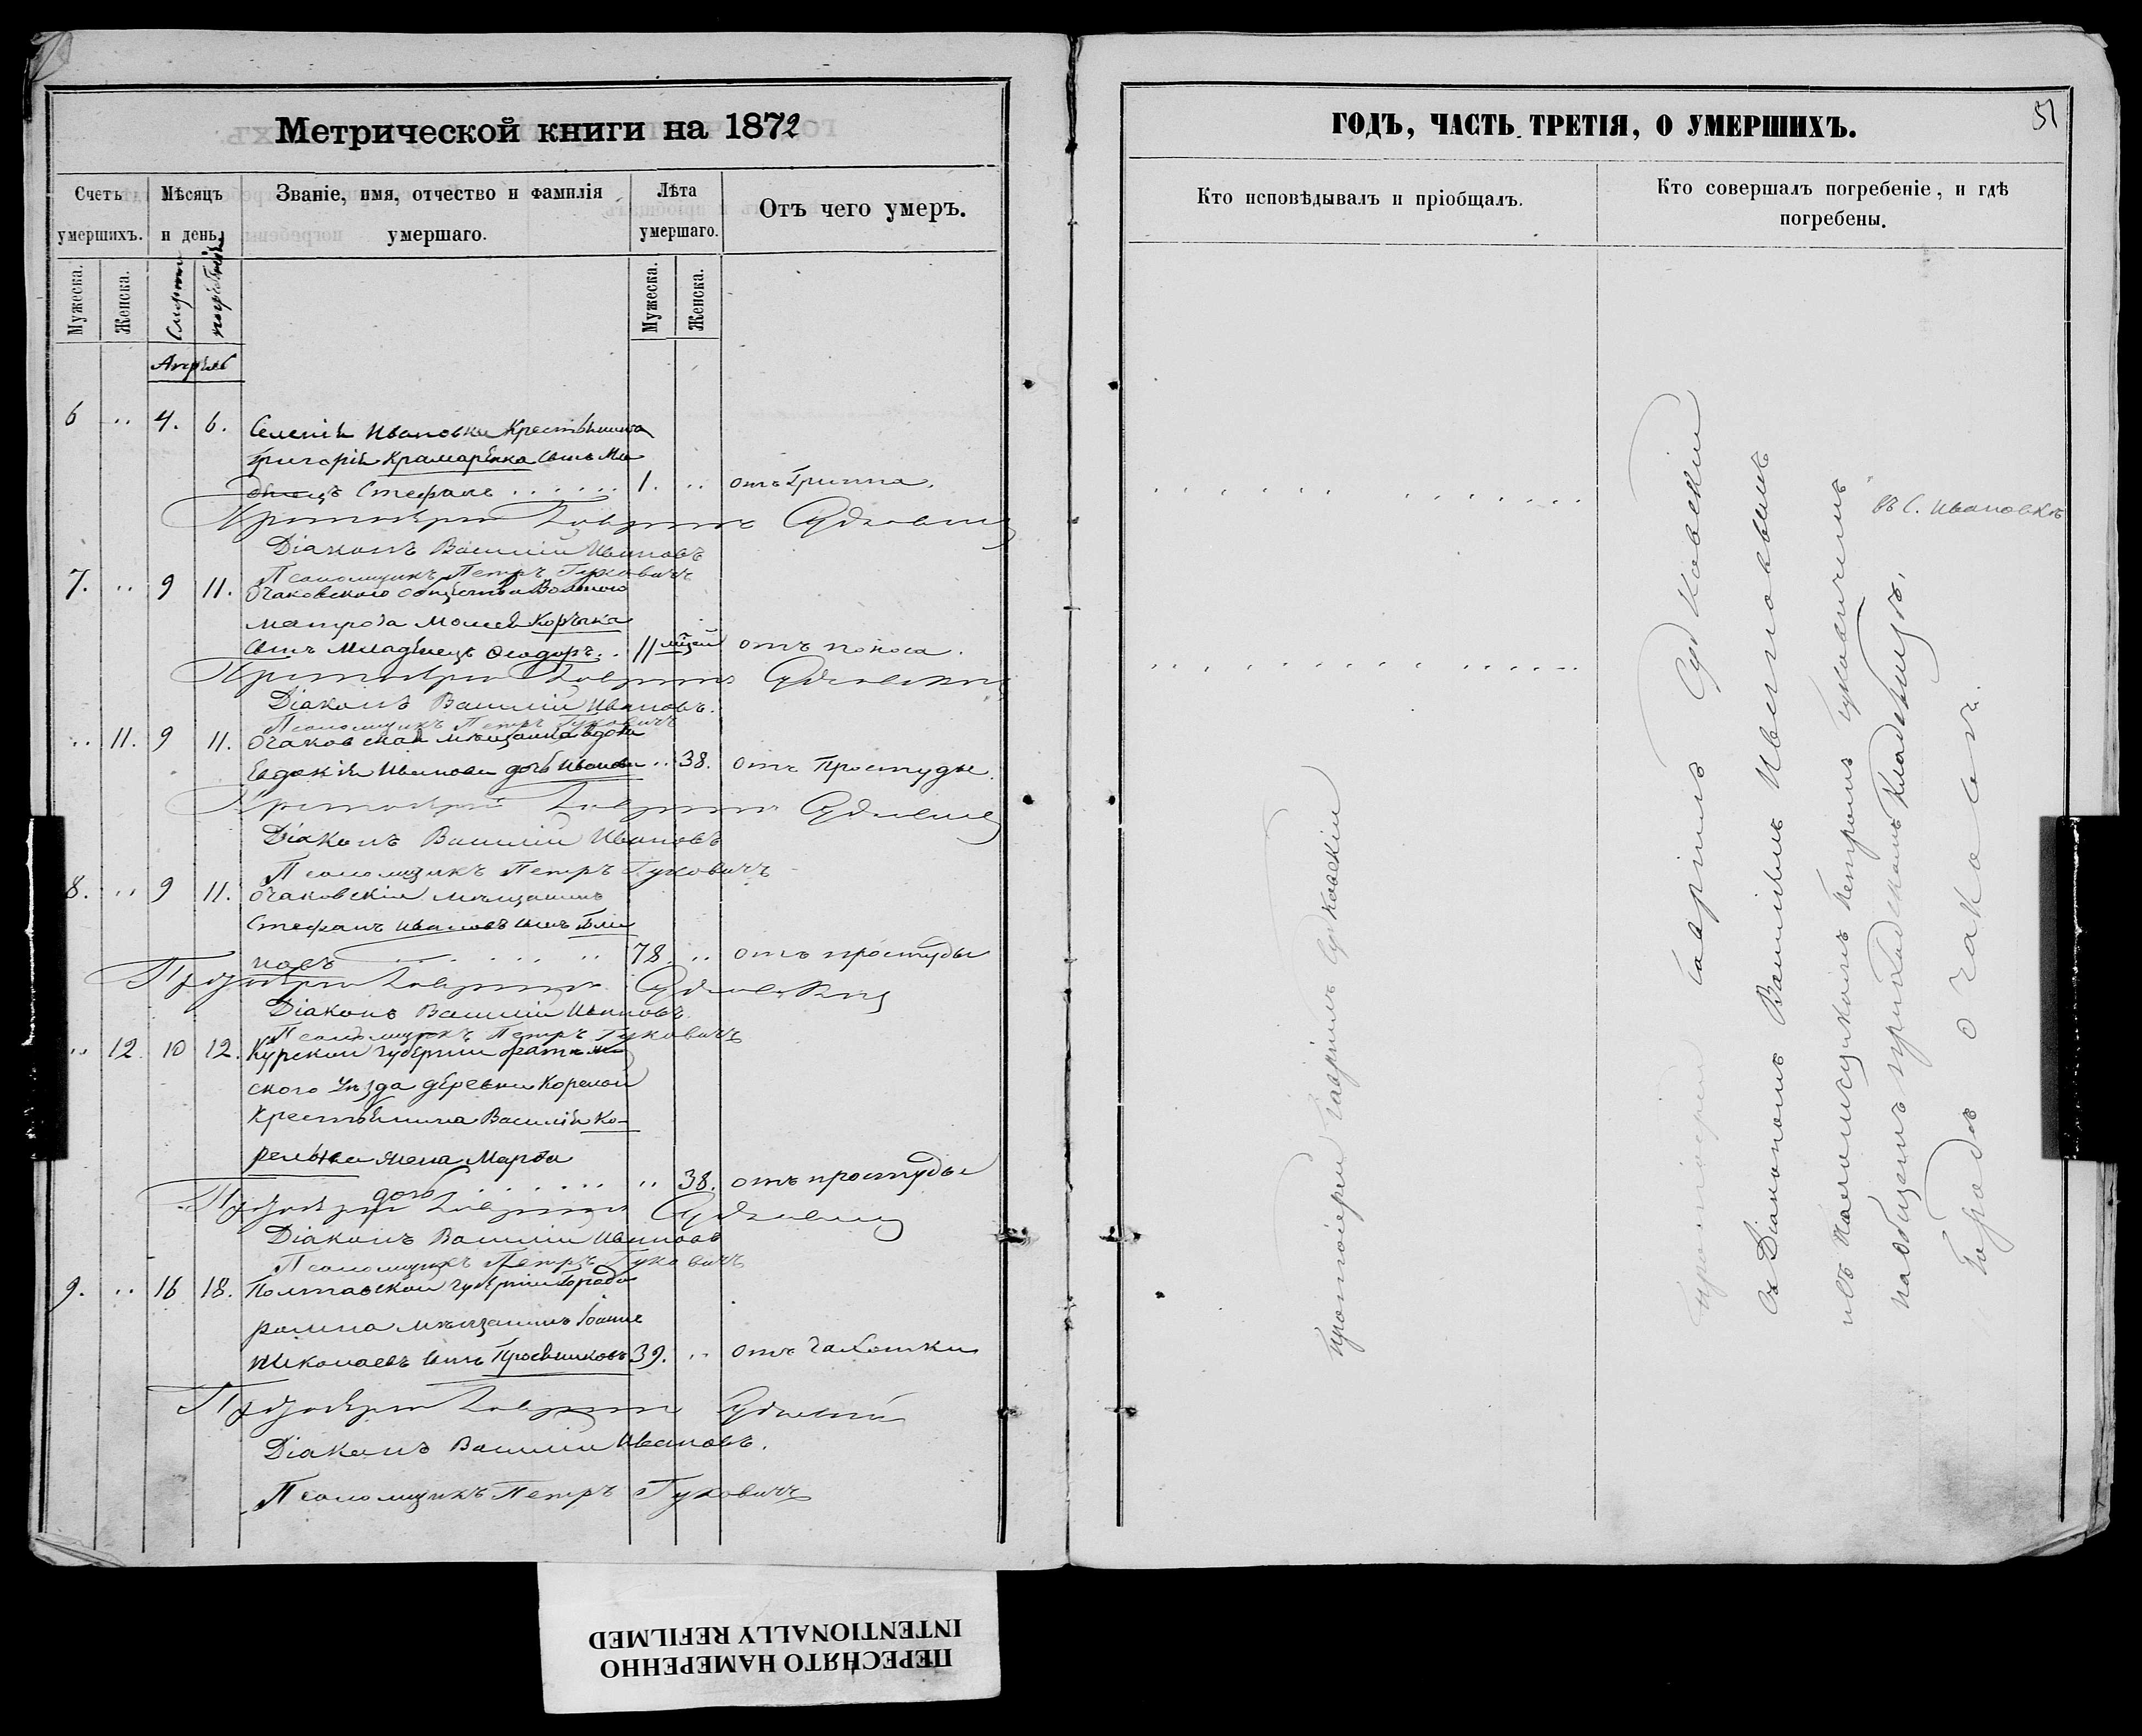 Метрической книги на 1872
Счетъ умершихъ.
Мѣсяцъ и день
Званіе, имя, отчество и фамилія умершаго.
Лѣта умершаго.
Отъ чего умеръ.
Мужеска.
Женска.
Смерти
погребенія
Мужеска.
Женска.
Апрѣль
6 .. 4. 6. Селенія Ивановки Крестьянина
Григорія Крамаренка сынъ Мла
денецъ Стефанъ 1. .. отъ Гриппа.
Протоіерей Гавріилъ Судковскій
Діаконъ Василій Ивановъ
Псаломщикъ Петръ Гуковичъ
7. .. 9 11. Очаковского общества Вольного
матроза Моисея Корѣнка
сынъ Младенецъ Ѳеодоръ.. 11 мѣсяцей отъ поноса.
Протоіерей Гавріилъ Судковскій
Діаконъ Василій Ивановъ.
Псаломщикъ Петръ Гуковичъ
.. 11. 9 11. Очаковская мѣщанка вдова
Евдокія Иванова дочь Иванова .. 38. отъ Простуды.
Протоіерей Гавріилъ Судковскій
Діаконъ Василій Ивановъ
Псаломщикъ Петръ Гуковичъ
8. .. 9 11. Очаковскій мѣщанинъ
Стефанъ Ивановъ сынъ Бли
новъ 78. .. отъ простуды
Протоіерей Гавріилъ Судковскій
Діаконъ Василій Ивановъ.
Псаломщикъ Петръ Гуковичъ
.. 12. 10 12. Курской губерніи
ского уѣзда деревни Кореной
Крестьянина Василія Ко-
рельнева жена Марѳа
дочь .. 38. отъ простуды
Протоіерей Гавріилъ Судковскій
Діаконъ Василій Ивановъ
Псаломщикъ Петръ Гуковичъ
9. .. 16 18. Полтавской губерніи Города
ромна мѣщанинъ Іоаннъ
Николаевъ сынъ 39. .. отъ чахотки
Протоіерей Гавріилъ Судковскій
Діаконъ Василій Ивановъ.
Псаломщикъ Петръ Гуковичъ
ГОДЪ, ЧАСТЬ ТРЕТІЯ, О УМЕРШИХЪ.
51
Кто исповѣдывалъ и пріобщалъ.
Кто совершалъ погребеніе, и гдѣ погребены.
въ С. Ивановкѣ
Протоіерей Гавріилъ Судковскій
Протоіерей Гавріилъ Судковскій
съ Діакономъ Василіемъ Ивановымъ
и съ Псаломщикомъ Петромъ Гуковичемъ
на общемъ приходскомъ кладбищѣ.
Города Очакова.
ПЕРЕСНЯТО НАМЕРЕННО
INTENTIONALLY REFILMED